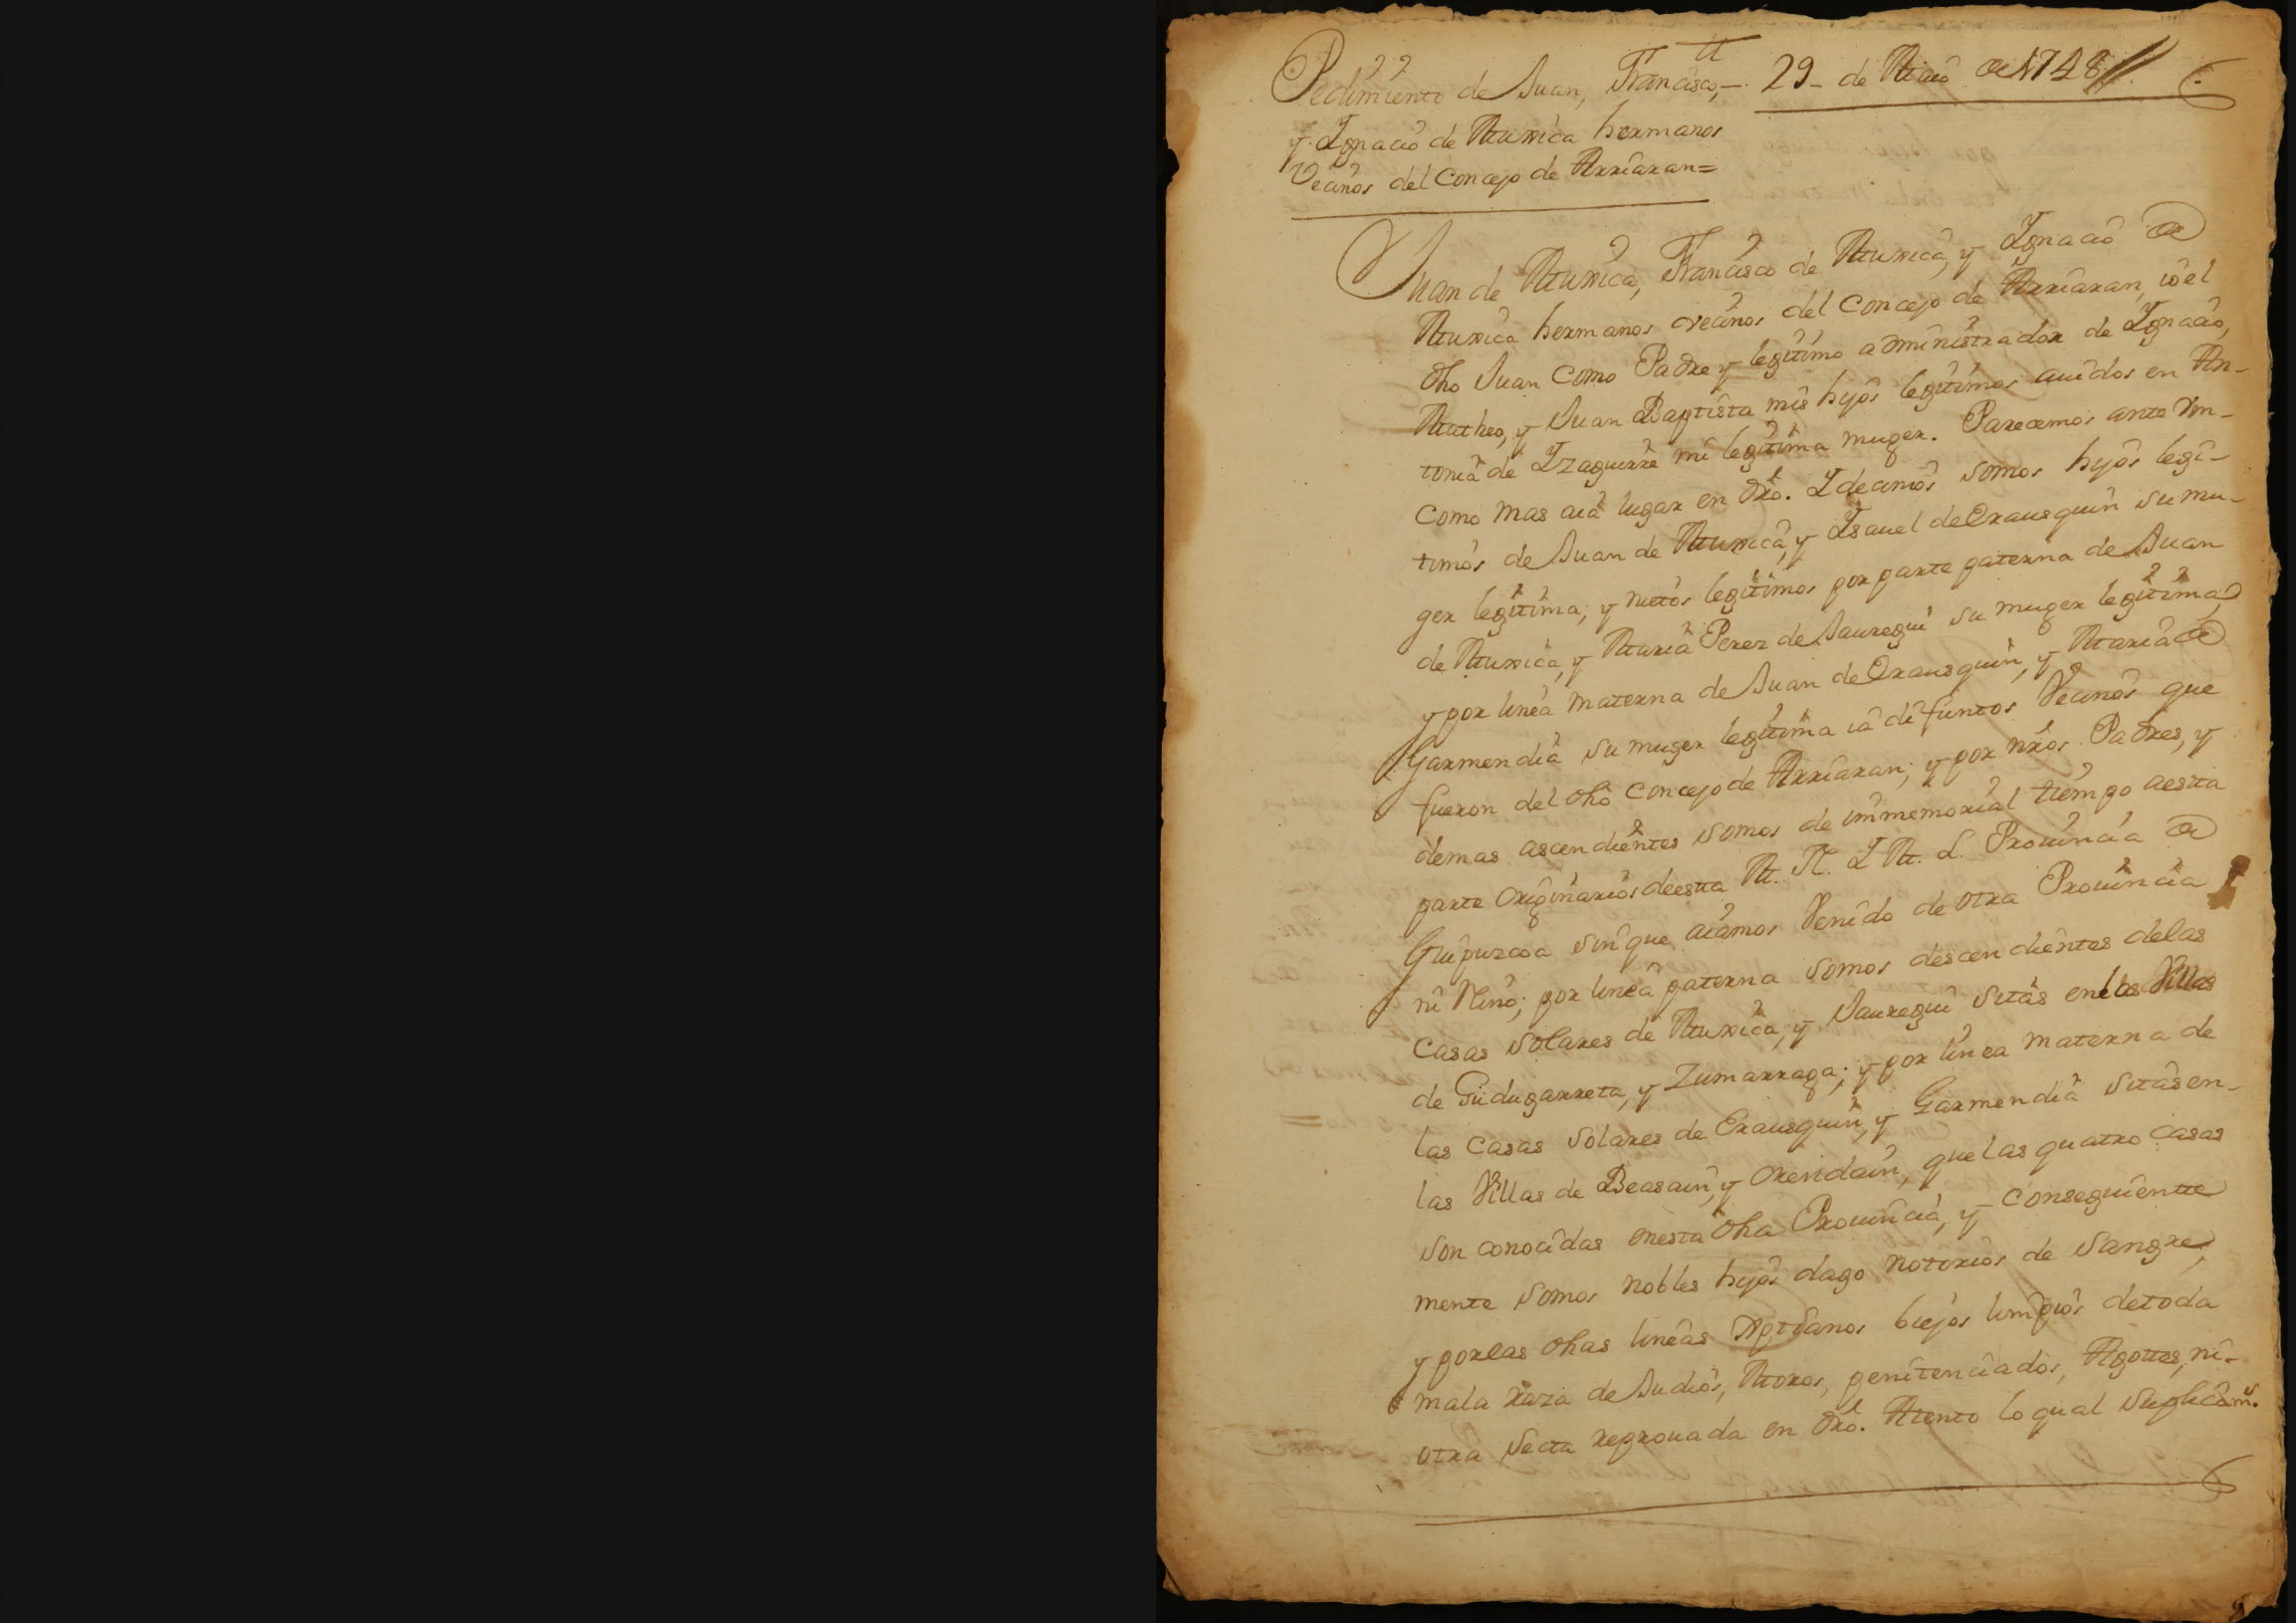 Pedimiento de Juan, Francisco,- 29- de Maio de 1748//.
y Ignacio de Muxica hermanos
Vecinos del Concejo de Arriaran=
Juan de Muxica, Francisco de Muxica, y Ignacio de
Muxica hermanos vecinos del Concejo de Arriaran, io el
dho Juan como Padre y legitimo administrador de Ignacio,
Matheo, y Juan Baptista mis hijos legitimos auidos en An-
tonia de Yzaguirre mi legitima muger. Parecemos ante Vm-
como mas aia lugar en dro. Y decimos somos hijos legi-
timos de Juan de Muxica, y Ysauel de Exausquin su mu-
ger legitima; y nietos legitimos por parte paterna de Juan
de Muxica, y Maria Perez de Jauregui su muger legitima,
y por linea materna de Juan de Exausquin, y Maria de
Garmendia su muger legitima ia difuntos Vecinos que
fueron del dho Concejo de Arriaran; y por nros Padres, y
demas ascendientes somos de immemorial tiempo aesta
parte originarios deesta M. N. Y M. L. Prouincia de
Guipuzcoa sin que aiamos Venido de otra Prouincia
ni Reino; por linea paterna somos descendientes delas
casas solares de Muxica, y Jauregui sitas en las Villas
de Gudugarreta, y Zumarraga; y por linea materna de
las casas solares de Exausquin, y Garmendia sitas en-
las Villas de Beasain, y Orendain, que las quatro casas
son conocidas enesta dha Prouincia, y conseguiente
mente somos nobles hijos dago notorios de sangre,
y porlas dhas lineas xptianos biejos limpios detoda
mala raza de Judios, Moros, penitenciados, Agottes, ni-
otra secta reprouada en dro. Atento lo qual suplicams.